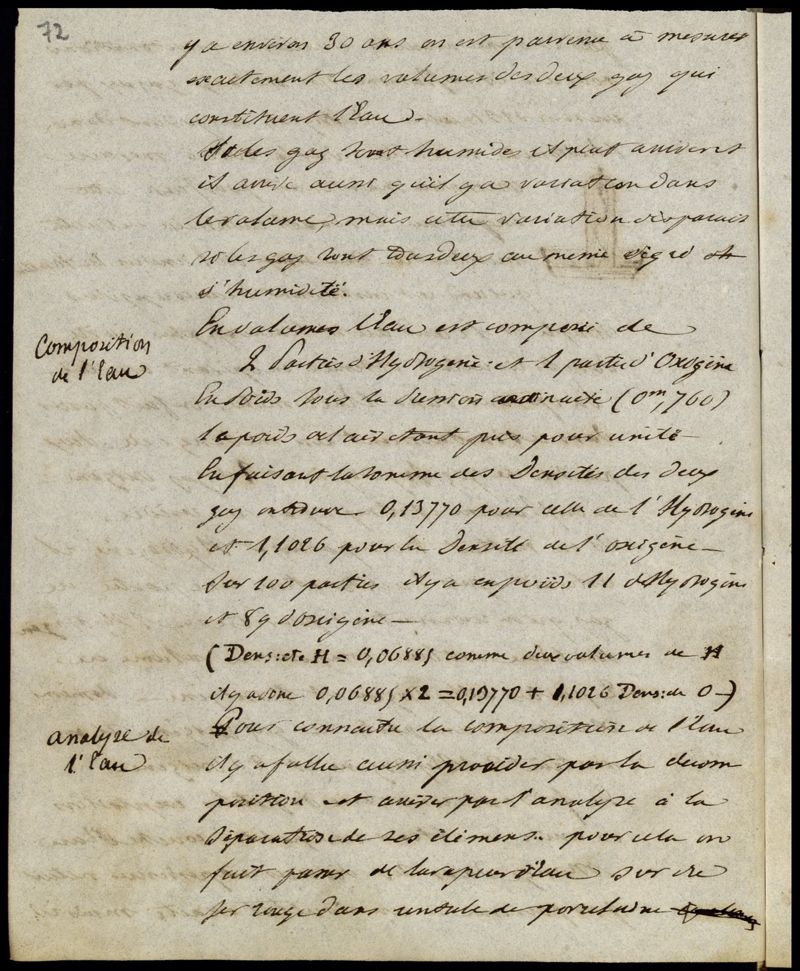 72
y a environ 30 ans on est parvenu à mesurer
exactement les volumes des deux gaz qui
constituent l'Eau.
Si les gaz sont humides il peut arriver et
il arrive aussi qu'il y a variation dans
le volume, mais cette variation disparait
si les gaz sont tous deux au même dégré
d'humidité.
Composition
de l'Eau
En volumes l'Eau est composée de
2 Parties d'Hydrogène et 1 partie d'Oxigène
En Poids sous la Pression ordinaire (0m,760)
le poids de l'air étant pris pour unité
En faisant la somme des Densités des deux
gaz on trouve 0,13770 pour celle de l'Hydrogène
et 1,1026 pour la Densité de l'oxigène —
Sur 100 parties il y a en poids 11 d'Hydrogène
et 89 d'oxigène —
(Densité H = 0,06885 comme deux volumes de H
il y a donc 0,06885 × 2 = 0,13770 + 1,1026 Dens: de O —)
analyse de
l'Eau
Pour connaitre la composition de l'Eau
il y a fallu aussi procéder par la décom
position et arriver par l'analyse à la
Séparation de ses élémens. pour cela on
fait passer de la vapeur d'Eau sur du
fer rouge dans un tube de porcelaine